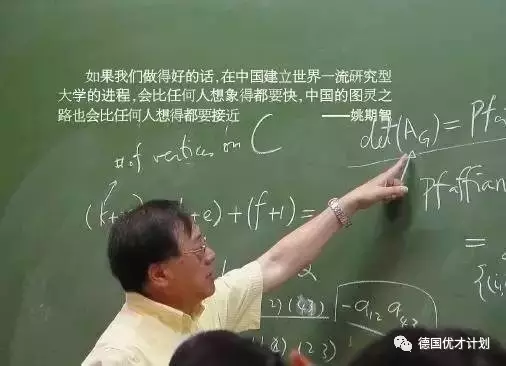 如果我们做得好的话,在中国建立世界一流研究型
大学的进程,会比任何人想象得都要快,中国的图灵之
路也会比任何人想得都要接近 ——姚期智
# of vertices in C
det(A_G) = Pfa
Pfaffian
+ (f+1) =
2
=
-a₁₂ a₄₃
(2 3)
德国优才计划